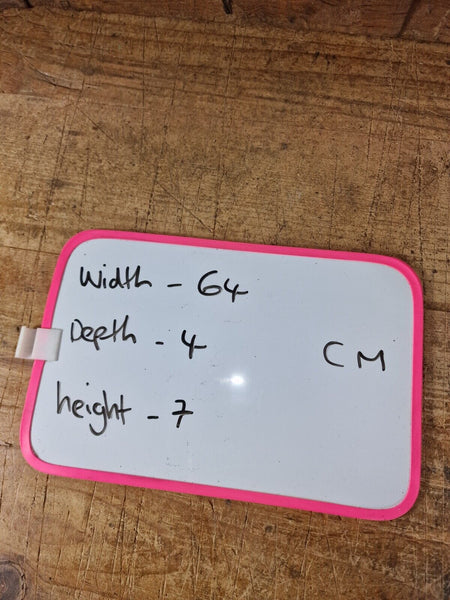 Width - 64
Depth - 4
CM
height - 7